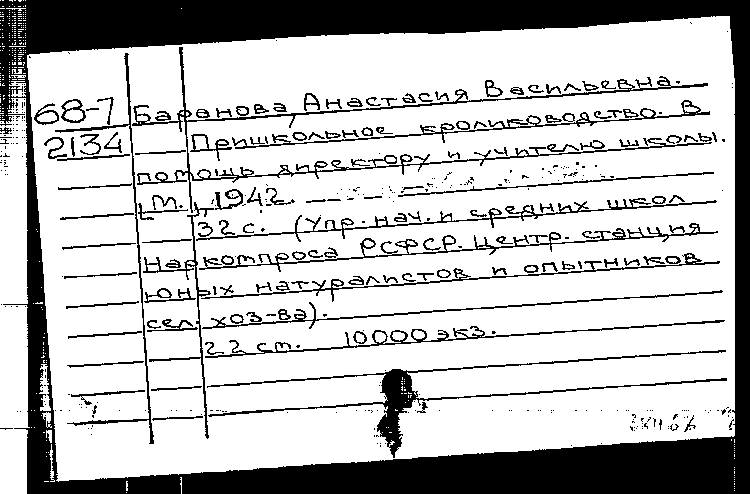 68-7 Баранова, Анастасия Васильевна.
2134 Пришкольное кролиководство. В
помощь директору и учителю школы.
[М.], 1942.
32 с. (Упр. нач. и средних школ
Наркомпроса РСФСР. Центр. станция
юных натуралистов и опытников
сел. хоз-ва).
22 см. 10000 экз.